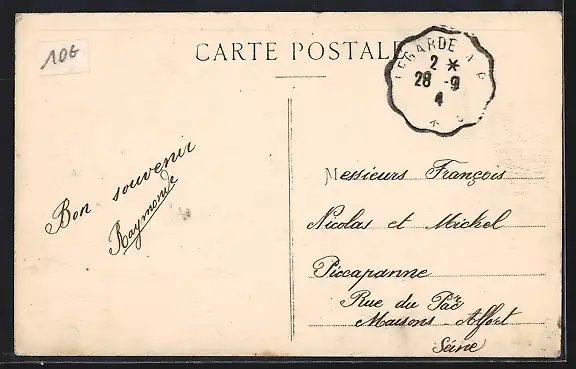 10G
CARTE POSTALE
2 *
28 -9
4
Bon souvenir
Raymonde
Messieurs François
Nicolas et Michel
Piccapanne
Rue du Parc
Maisons-Alfort
Seine